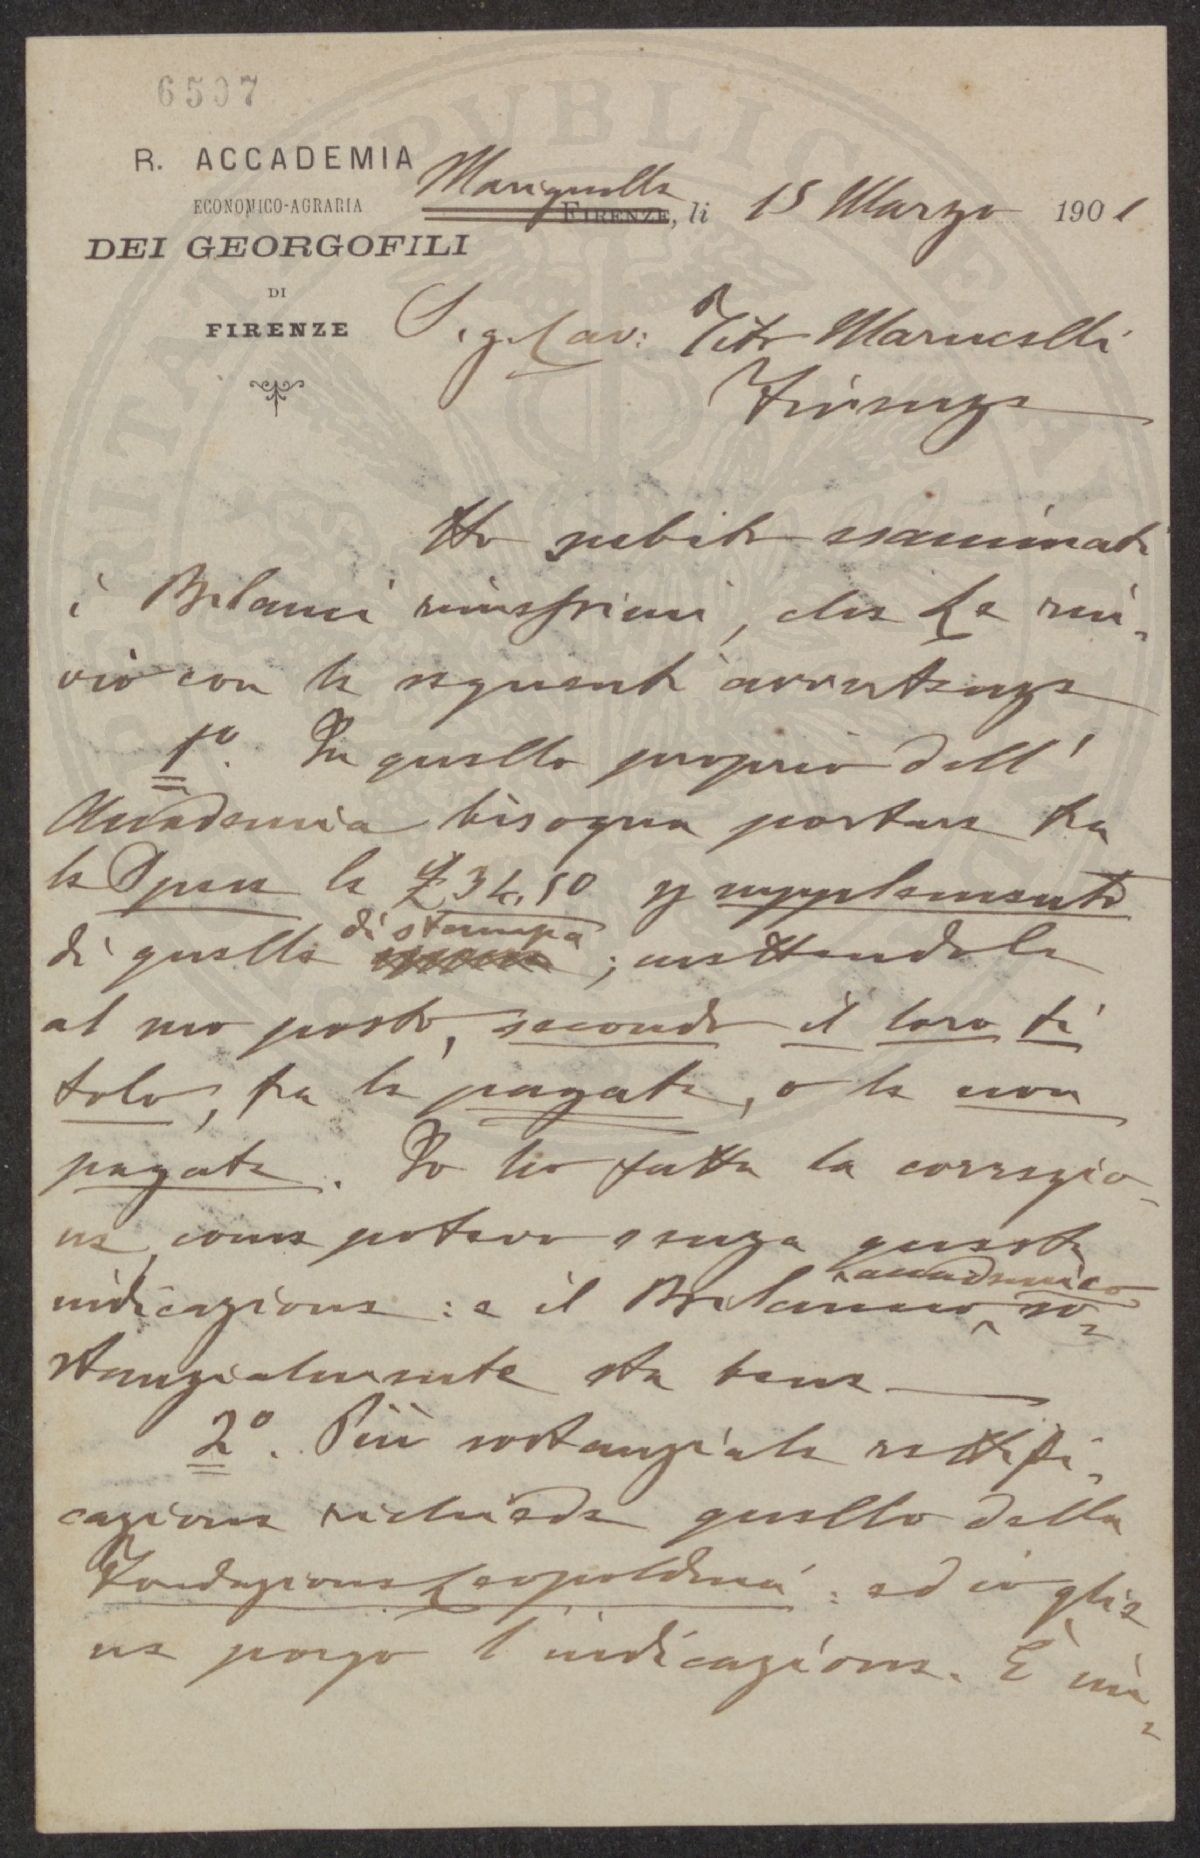 6507
R. ACCADEMIA
ECONOMICO-AGRARIA
DEI GEORGOFILI
DI
FIRENZE
Marignolle
FIRENZE, li 15 Marzo 1901
Sig. Cav: Tito Marucelli
Firenze
Ho subito esaminati
i Bilanci rimessimi, che Le rin-
viò con le seguenti avvertenze
1º. In quello proprio dell'
Accademia bisogna portare tra
le Spese le £ 34,50 supplemento
di quelle di stampa; mettendole
al suo posto, secondo il loro ti
tolo, fra le pagate, o le non
pagate. Io ho fatta la correzio-
ne come potevo senza questa
indicazione: e il Bilancio accademico so-
stanzialmente sta bene
2º. Più sostanziale rettifi-
cazione richiede quello della
Fondazione Leopoldina: ed io gliene
ne porgo l'indicazione. È in-